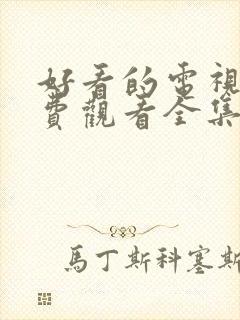 好看的電視
費觀看全集
馬丁斯科塞斯